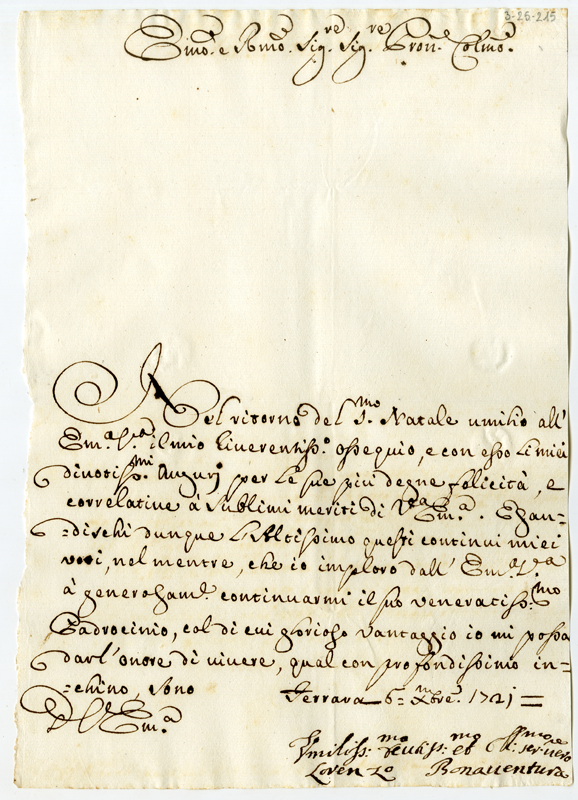 3-26-215
Emo. e Rmo. Sigre. Sigre. Pron. Colmo.
Nel ritorno del Smo. Natale umilio all'
Ema. Va. il mio riverentisso. ossequio, e con esso li miei
divotissmi. Augurj per le sue più degne felicità, e
correlative à sublimi meriti di Vra Ema. Esau-
-dischi dunque l'Altissimo questi continui miei
voti, nel mentre, che io imploro dall' Ema. Va
à generosamte. continuarmi il suo veneratissmo
Padrocinio, col di cui glorioso vantaggio io mi possa
darl'onore di vivere, qual con profondissimo in-
-chino, sono Ferrara 6 Xbre. 1721
D. V. Ema
Umiliss:mo devotiss:mo et obb:mo serre vero
Lorenzo Bonaventura